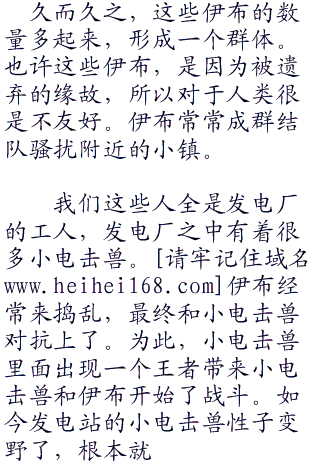 久而久之，这些伊布的数
量多起来，形成一个群体。
也许这些伊布，是因为被遗
弃的缘故，所以对于人类很
是不友好。伊布常常成群结
队骚扰附近的小镇。
我们这些人全是发电厂
的工人，发电厂之中有着很
多小电击兽。[请牢记住域名
www.heihei168.com]伊布经
常来捣乱，最终和小电击兽
对抗上了。为此，小电击兽
里面出现一个王者带来小电
击兽和伊布开始了战斗。如
今发电站的小电击兽性子变
野了，根本就